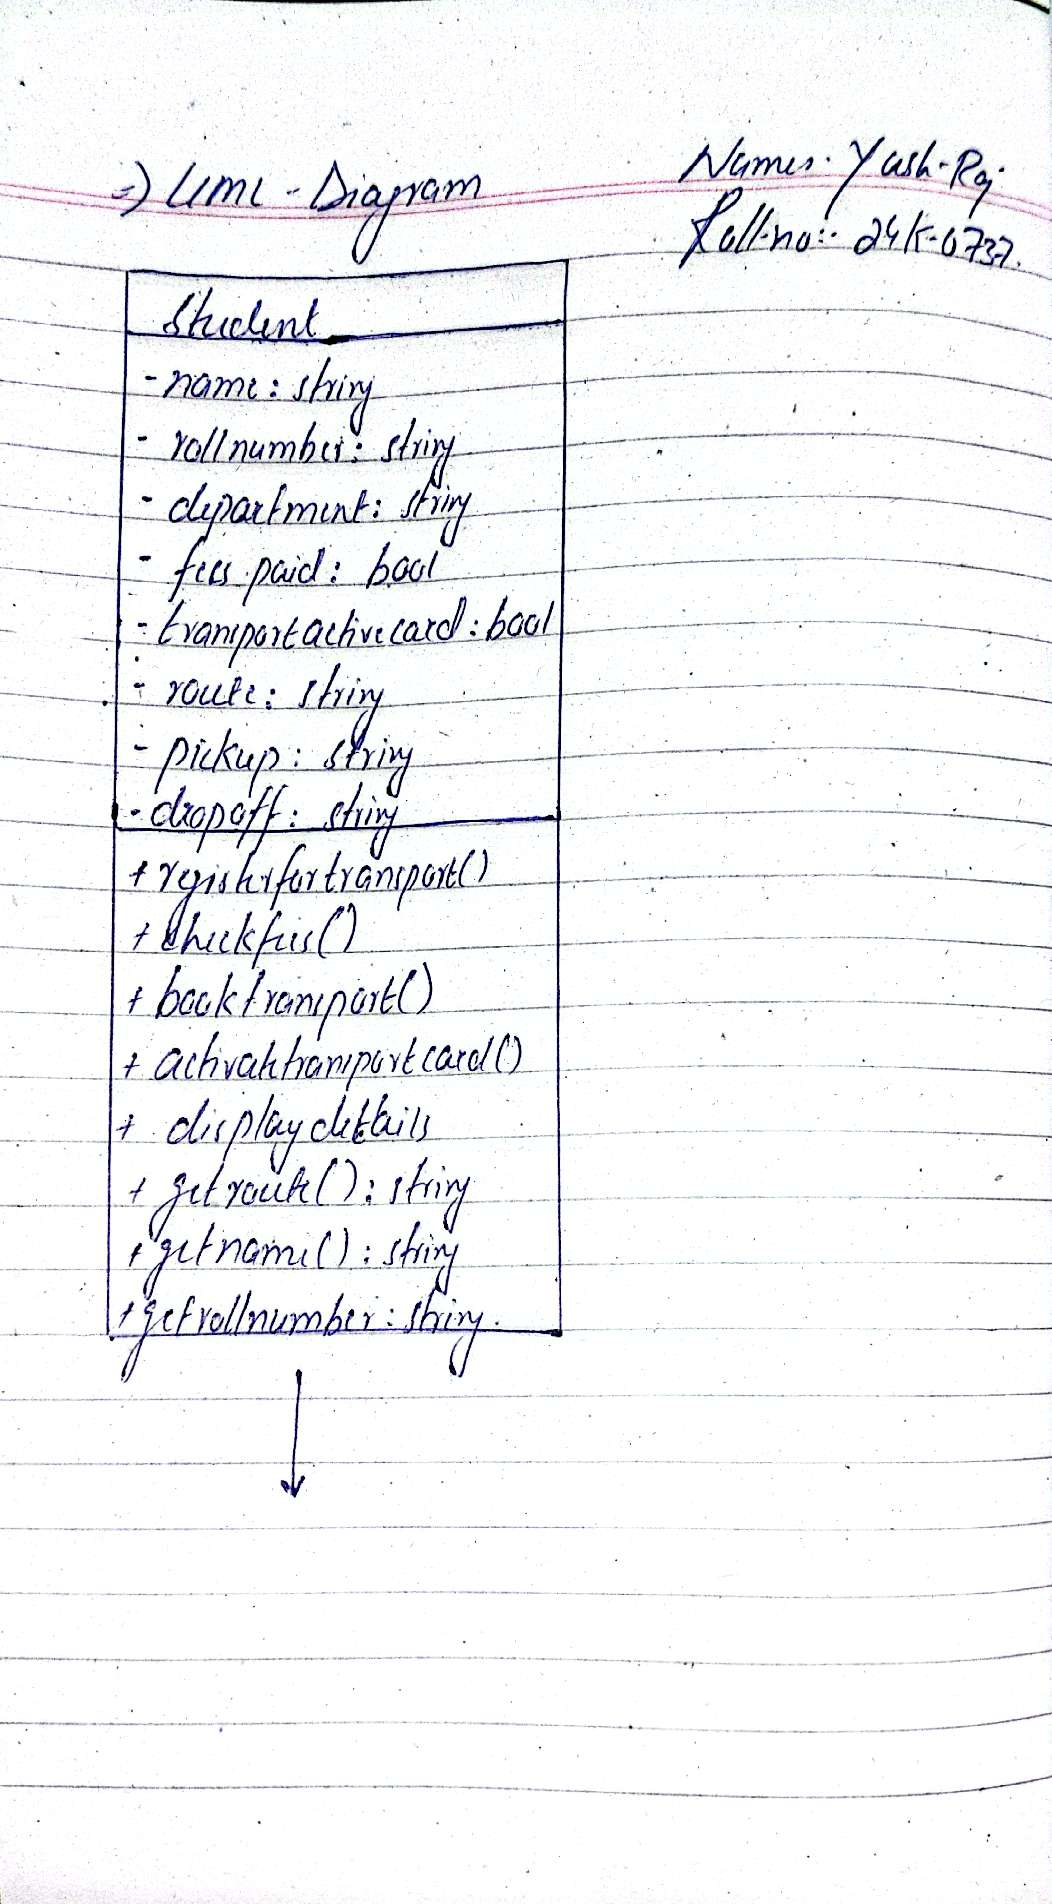 =) UML - Diagram
Name:- Yash-Raj.
Roll-no:- 24K-0737.
Student
- name : string
- rollnumber : string
- department : string
- fees paid : bool
- transportactivecard : bool
- route : string
- pickup : string
- dropoff : string
+ registerfortransport()
+ checkfees()
+ booktransport()
+ activatetransportcard()
+ displaydetails
+ getroute() : string
+ getname() : string
+ getrollnumber : string.